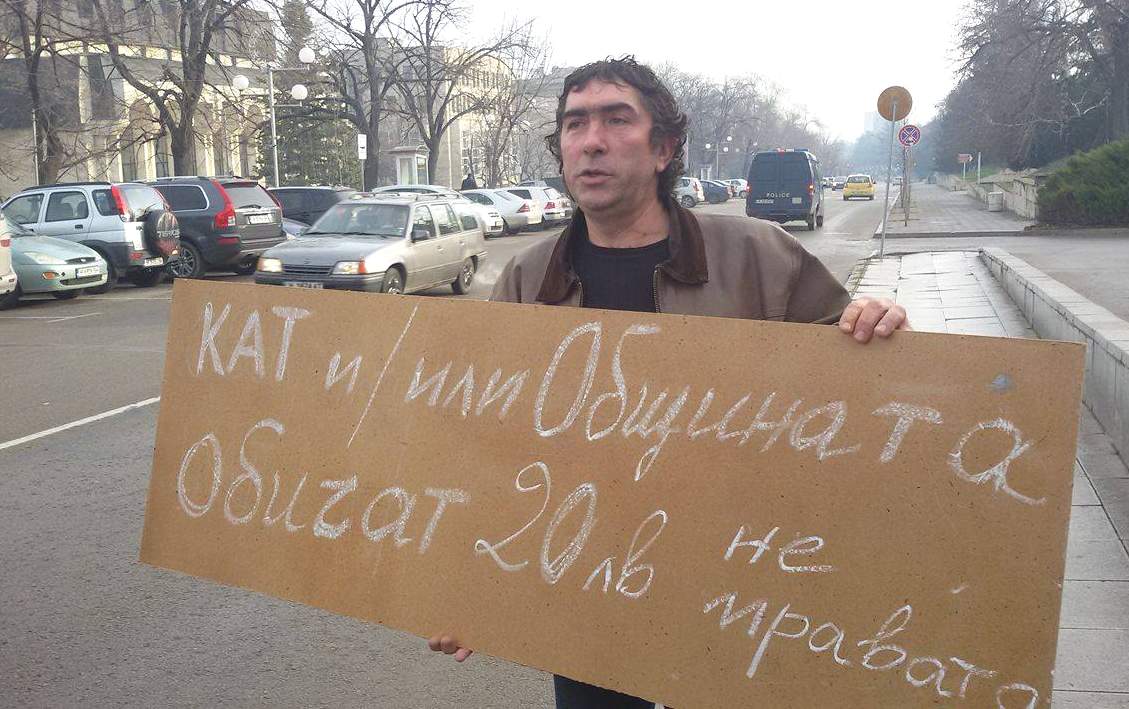 КАТ и/или Общината
Обичат 20лв не
тревата
POLICE